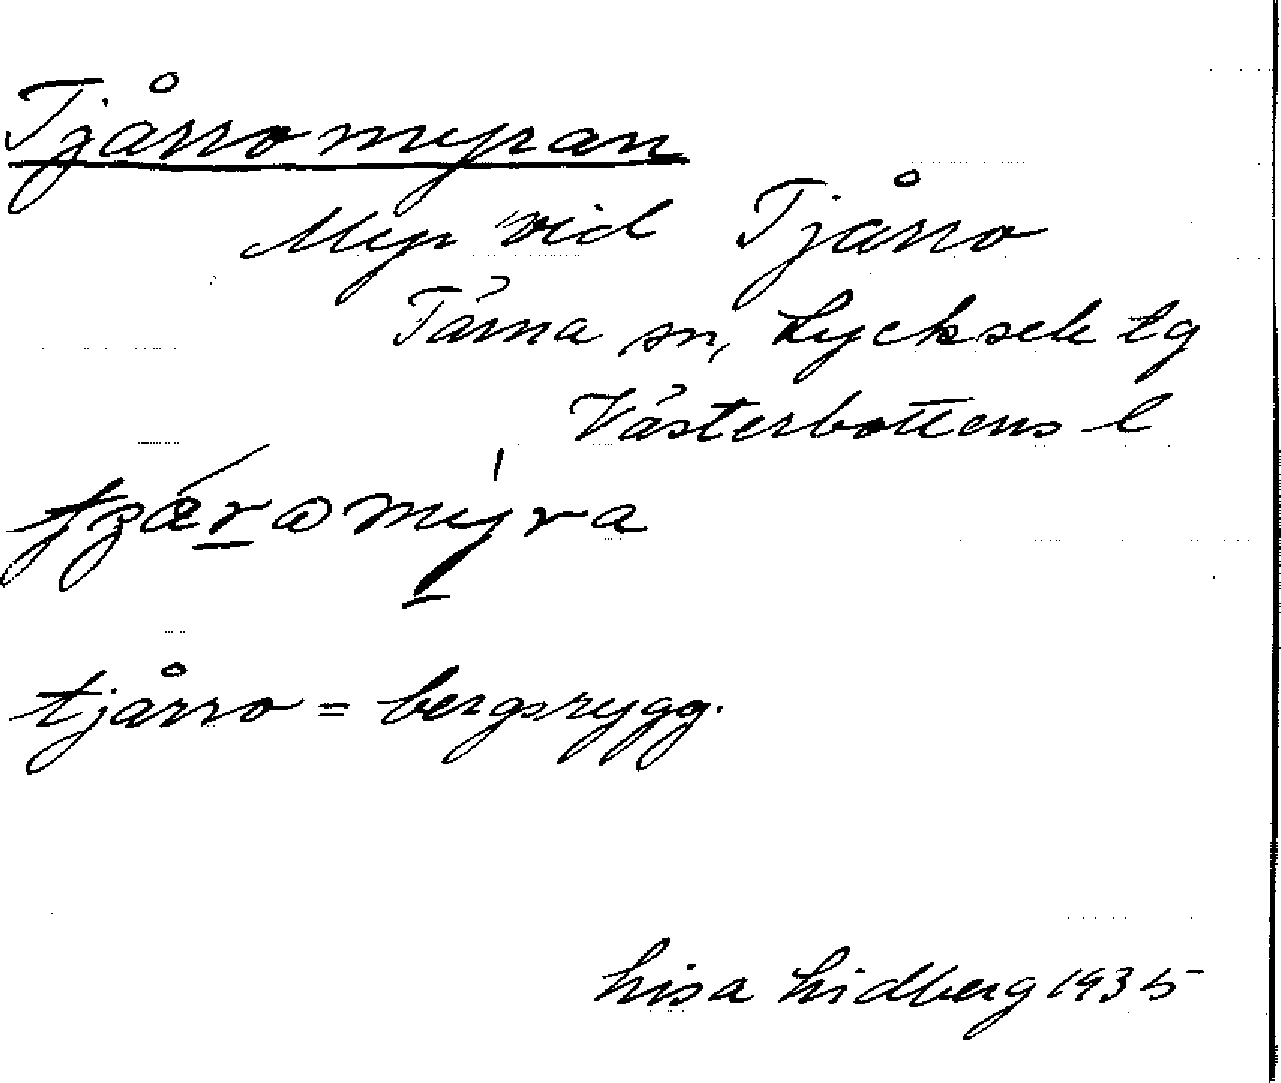 Tjårromyran
Myr vid Tjårro
Tärna sn, Lycksele tg
Västerbottens l
tjårro = bergsrygg.
Lisa Lidberg 1935